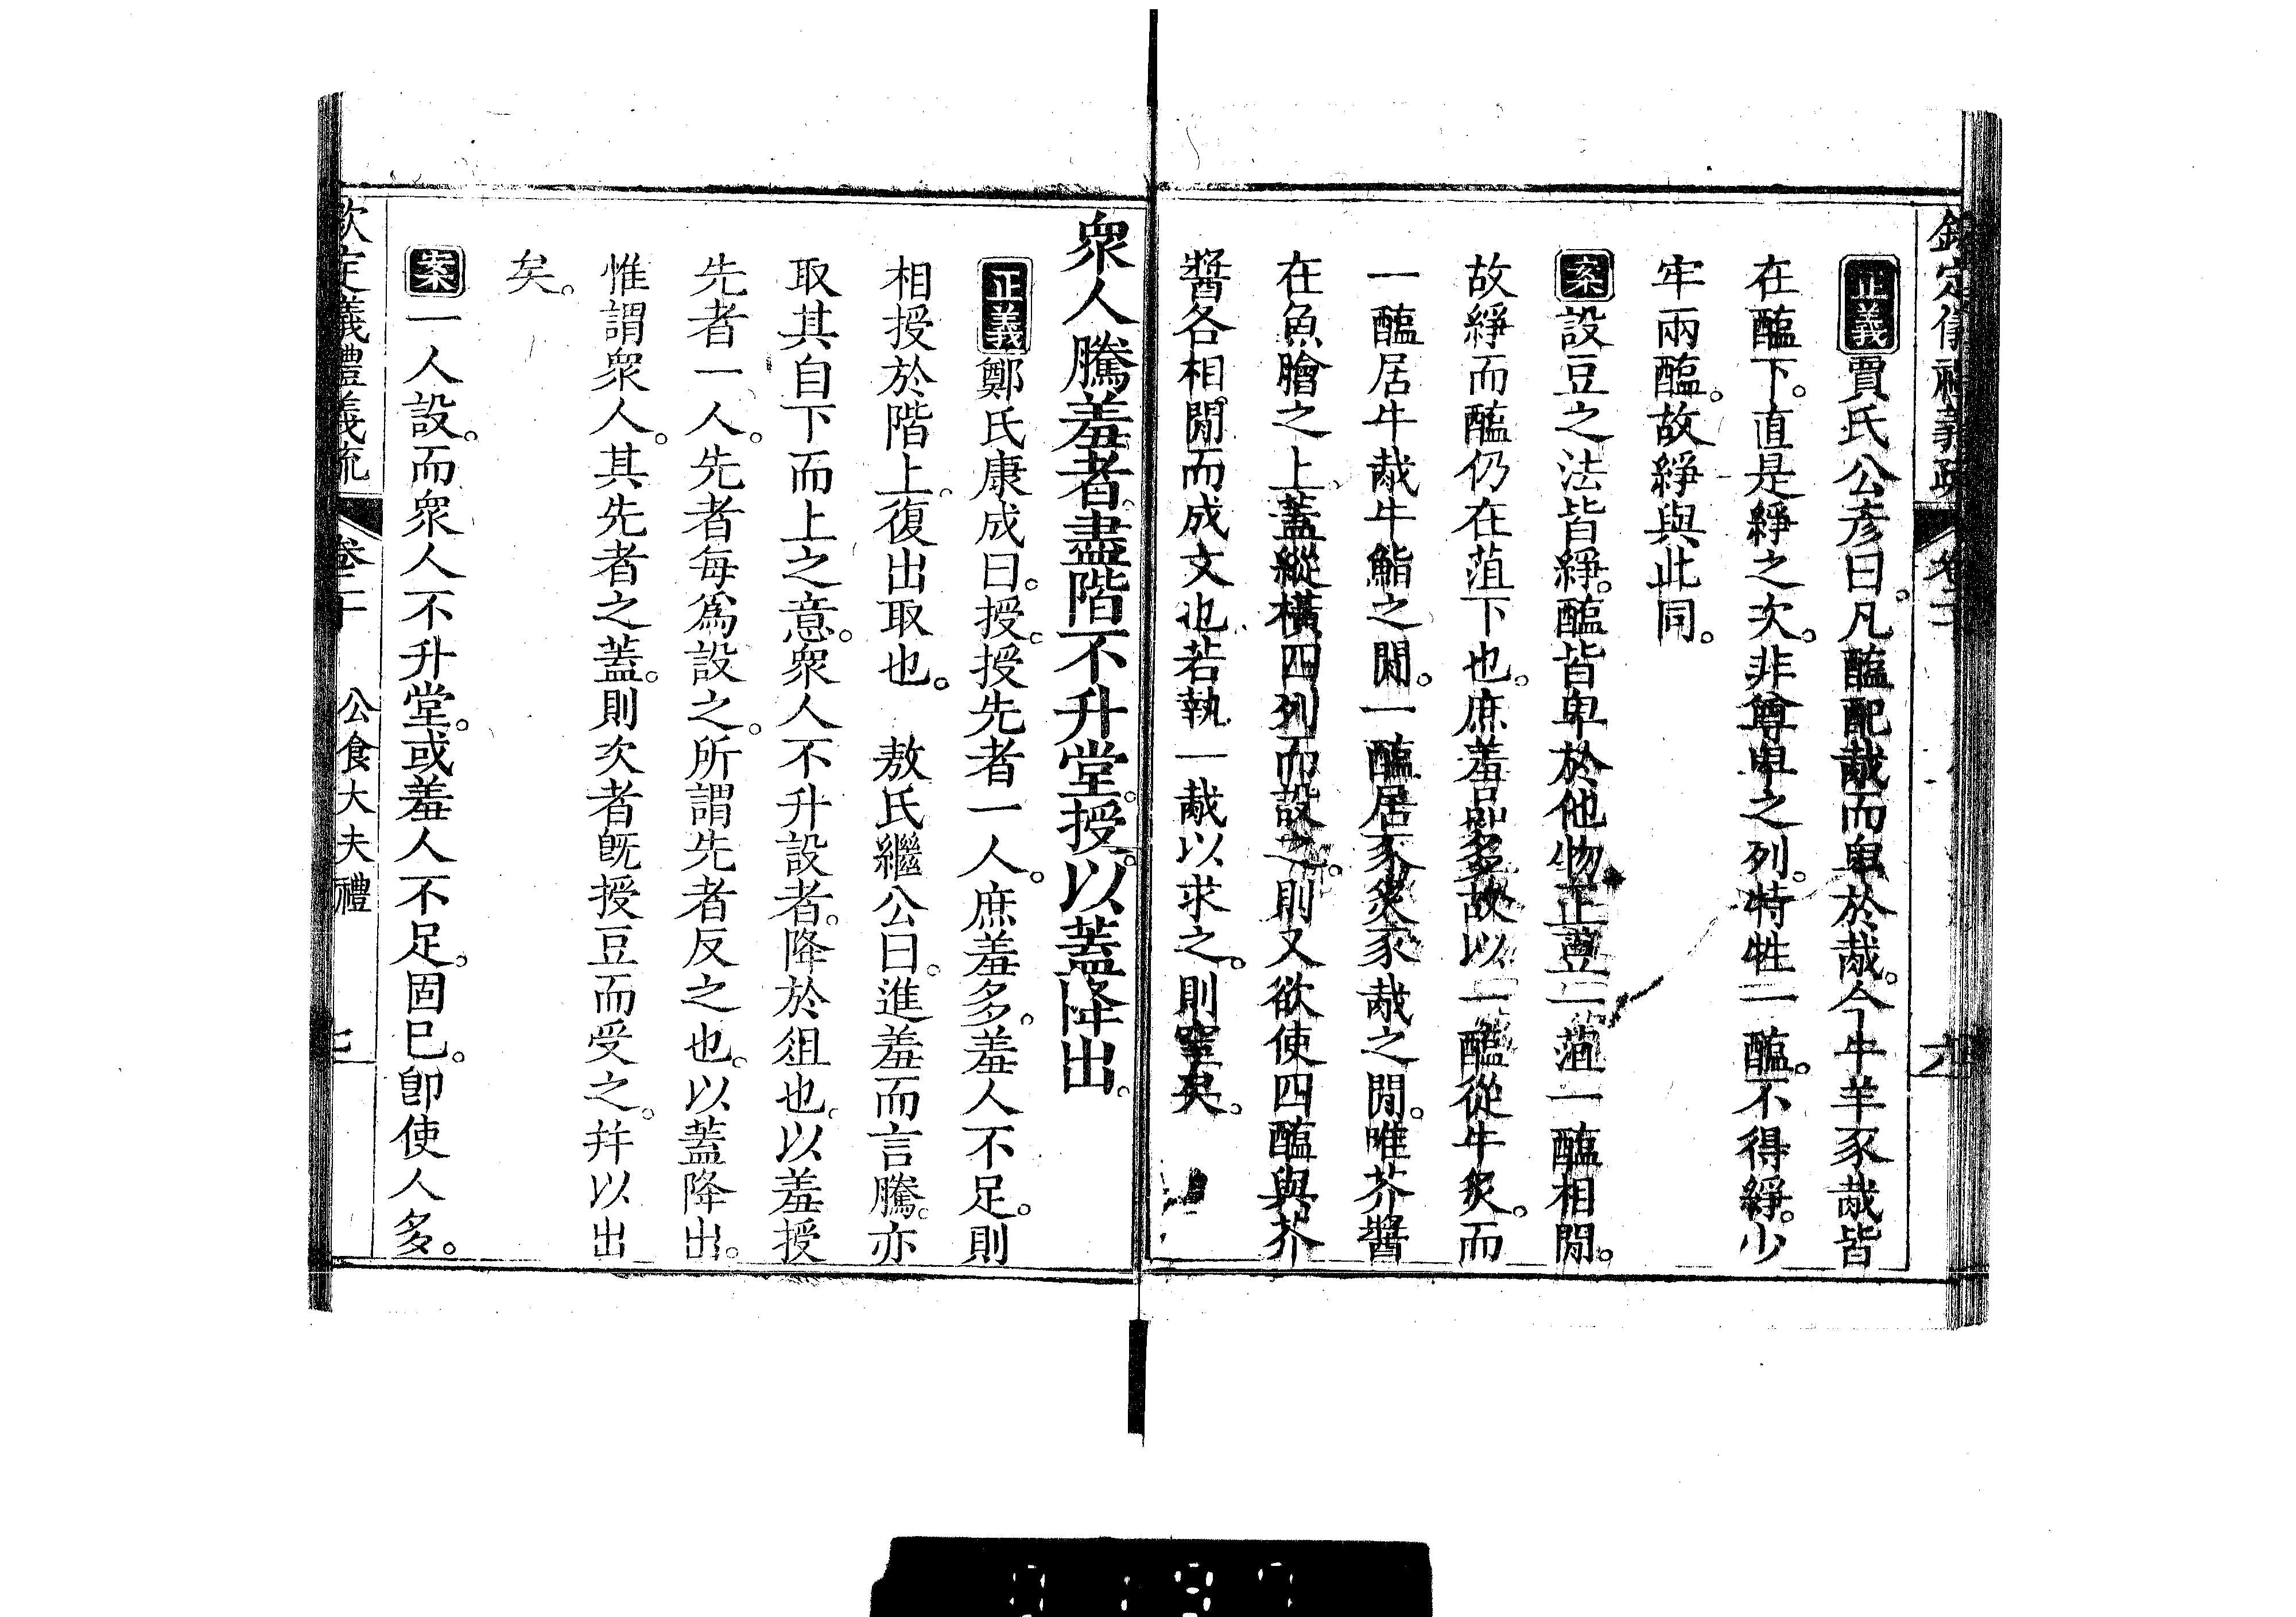 欽定儀禮義疏 卷二十 六
正義賈氏公彥曰。凡醢配胾而卑於胾。今牛羊豕胾皆
在醢下。直是綪之次。非尊卑之列。特牲一醢。不得綪。少
牢兩醢。故綪與此同。
案設豆之法皆綪。醢皆卑於他物。正豆一菹一醢相閒。
故綪而醢仍在菹下也。庶羞品多。故以一醢從牛炙。而
一醢居牛胾牛鮨之閒。一醢居豕炙豕胾之閒。唯芥醬
在魚膾之上。蓋縱橫四列而設之。則又欲使四醢與芥
醬各相閒而成文也。若執一胾以求之。則窒矣。
衆人騰羞者。盡階不升堂。授。以蓋降出。
正義鄭氏康成曰。授。授先者一人。庶羞多。羞人不足。則
相授於階上。復出取也。 敖氏繼公曰。進羞而言騰。亦
取其自下而上之意。衆人不升設者。降於俎也。以羞授
先者一人。先者每為設之。所謂先者反之也。以蓋降出。
惟謂衆人。其先者之蓋。則次者旣授豆而受之。幷以出
矣。
案一人設。而衆人不升堂。或羞人不足。固已。卽使人多。
欽定義禮義疏 卷二十 公食大夫禮 七